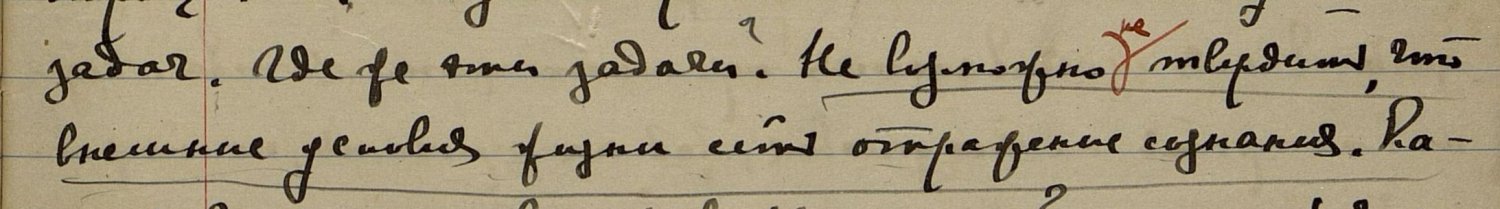 задач. Где же эти задачи? Не возможно не твердить, что
внешние условия жизни есть отражение сознания. Ка-